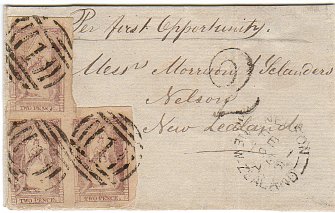 Per first Opportunity.
Messrs Morrison & Sclanders
Nelson
New Zealand
2
TWO PENCE
TWO PENCE
TWO PENCE
NELSON
NEW ZEALAND